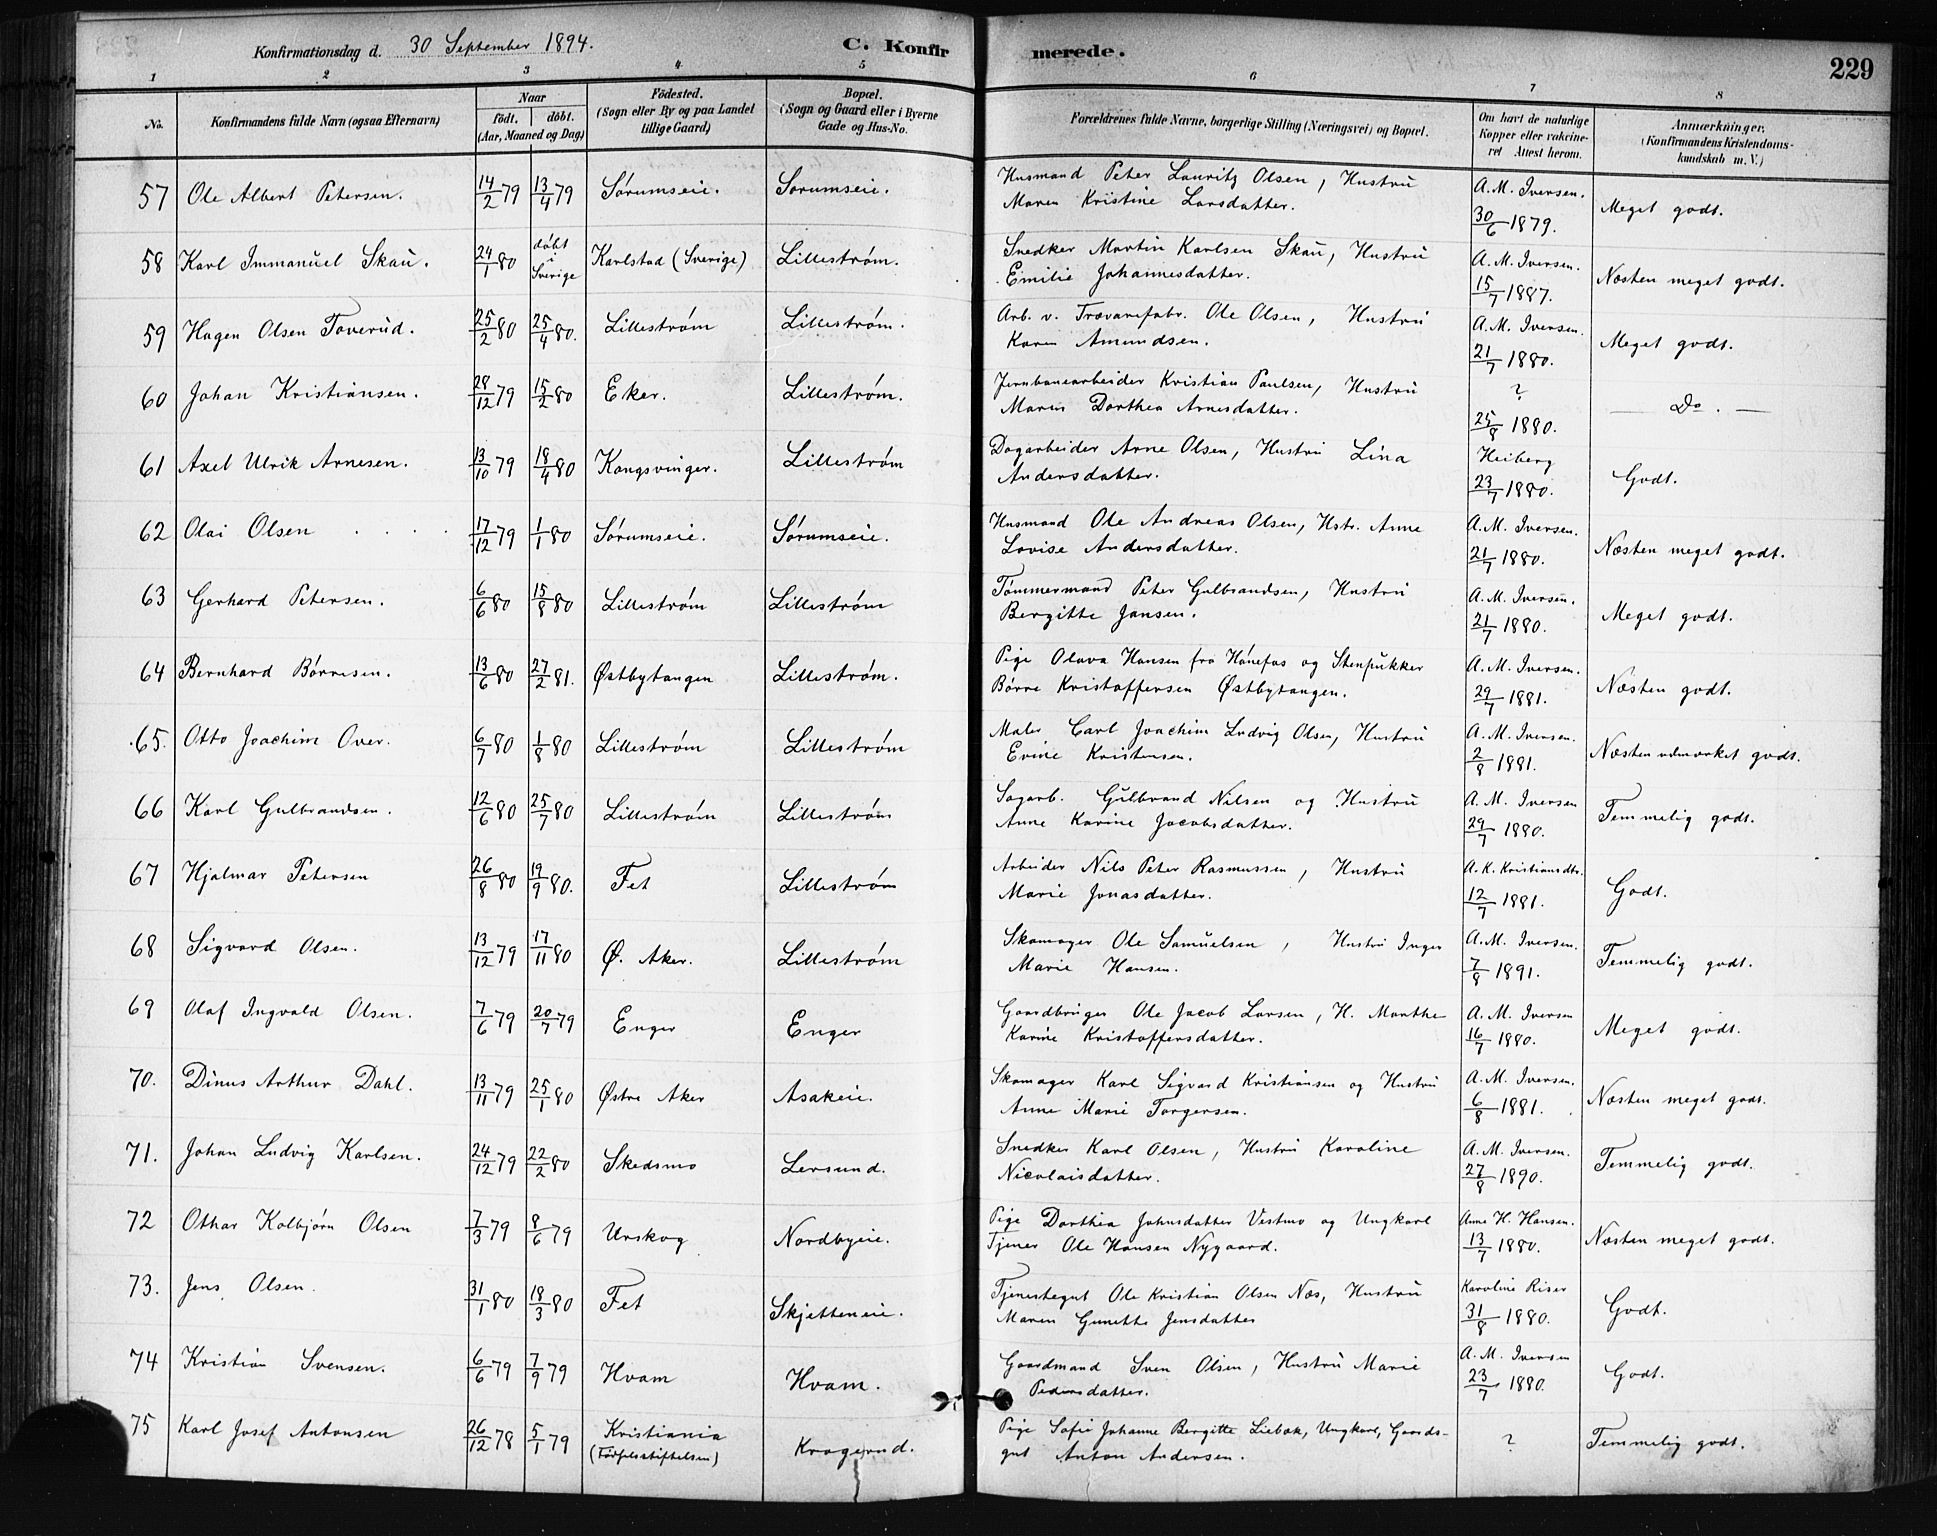 Konfirmationsdag d. 30 September 1894.
C. Konfirmerede.
229
1 2 3 4 5 6 7 8
No.
Konfirmandens fulde Navn (ogsaa Efternavn)
Naar
født. døbt.
(Aar, Maaned og Dag)
Fødested.
(Sogn eller By og paa Landet
tillige Gaard)
Bopæl.
(Sogn og Gaard eller i Byerne
Gade og Hus-No.
Forældrenes fulde Navne, borgerlige Stilling (Næringsvei) og Bopæl.
Om havt de naturlige
Kopper eller vakcine-
ret Attest herom.
Anmærkninger.
(Konfirmandens Kristendoms-
kundskab m. V.)
57 Ole Albert Petersen. 14/2 79 13/4 79 Sørumseie. Sørumseie. Husmand Peter Lauritz Olsen, Hustru
Maren Kristine Larsdatter. A. M. Iversen. 30/6 1879. Meget godt.
58 Karl Immanuel Skau. 24/1 80 døbt i Sverige Karlstad (Sverige) Lillestrøm. Snedker Martin Karlsen Skau, Hustru
Emilie Johannesdatter. A. M. Iversen. 15/7 1887. Næsten meget godt.
59 Hagen Olsen Toverud. 25/2 80 25/4 80. Lillestrøm Lillestrøm. Arb. v. Trævarefabr. Ole Olsen, Hustru
Karen Amundsen. A. M. Iversen. 21/7 1880. Meget godt.
60 Johan Kristiansen. 28/12 79 15/2 80 Eker. Lillestrøm. Jernbanearbeider Kristian Paulsen, Hustru
Maren Dorthea Arnesdatter. ? 25/8 1880. — Do. —
61 Axel Ulrik Arnesen. 13/10 79 18/4 80 Kongsvinger. Lillestrøm Dagarbeider Arne Olsen, Hustru Lina
Andersdatter. Heiberg 23/7 1880. Godt.
62 Olai Olsen 17/12 79 1/1 80 Sørumseie. Sørumseie. Husmand Ole Andreas Olsen, Hstr. Anne
Lovise Andersdatter. A. M. Iversen. 21/7 1880. Næsten meget godt.
63 Gerhard Petersen. 6/6 80 15/8 80 Lillestrøm Lillestrøm Tømmermand Peter Gulbrandsen, Hustru
Bergitte Jansen. A. M. Iversen. 21/7 1880. Meget godt.
64 Bernhard Børresen. 13/6 80 27/2 81. Østbytangen Lillestrøm. Pige Olava Hansen fra Hønefos og Stenpukker
Børre Kristoffersen Østbytangen. A. M. Iversen. 29/7 1881. Næsten godt.
65. Otto Joachim Over. 6/7 80 1/8 80 Lillestrøm Lillestrøm Maler Carl Joachim Ludvig Olsen, Hustru
Evine Kristensen. A. M. Iversen. 2/8 1881. Næsten udmærket godt.
66 Karl Gulbrandsen. 12/6 80 25/7 80 Lillestrøm Lillestrøm Sagarb. Gulbrand Nilsen og Hustru
Anne Karine Jacobsdatter. A. M. Iversen 29/7 1880. Temmelig godt.
67 Hjalmar Petersen 26/8 80 19/9 80. Fet Lillestrøm Arbeider Nils Peter Rasmussen, Hustru
Marie Jonasdatter. A. K. Kristiansdtr. 12/7 1881. Godt.
68 Sigvard Olsen. 13/12 79 17/11 80 Ø. Aker. Lillestrøm Skomager Ole Samuelsen, Hustru Inger
Marie Hansen. A. M. Iversen. 7/8 1891. Temmelig godt.
69 Olaf Ingvald Olsen. 7/6 79 20/7 79 Enger Enger Gaardbruger Ole Jacob Larsen, H. Marthe
Karine Kristoffersdatter. A. M. Iversen 16/7 1880. Meget godt.
70. Dinus Arthur Dahl. 13/11 79 25/1 80 Østre Aker Asakeie. Skomager Karl Sigvard Kristiansen og Hustru
Anne Marie Torgersen. A. M. Iversen. 6/8 1881. Næsten meget godt.
71. Johan Ludvig Karlsen. 24/12 79 22/2 80 Skedsmo Lersund. Snedker Karl Olsen, Hustru Karoline
Nicolaisdatter. A. M. Iversen. 27/8 1890. Temmelig godt.
72 Othar Kolbjørn Olsen 7/3 79 8/6 79 Urskog Nordbyeie. Pige Dorthea Johnsdatter Vestmo og Ungkarl
Tjener Ole Hansen Nygaard. Anne H. Hansen. 13/7 1880. Næsten meget godt.
73. Jens Olsen. 31/1 80 18/3 80 Fet Skjetteneie. Tjenestegut Ole Kristian Olsen Næs, Hustru
Maren Gunette Jensdatter Karoline Riser 31/8 1880. Godt.
74 Kristian Svensen. 6/6 79 7/9 79 Hvam Hvam. Gaardmand Sven Olsen, Hustru Marie
Pedersdatter. A. M. Iversen 23/7 1880. Godt.
75 Karl Josef Antonsen 26/12 78 5/1 79 Kristiania
(Fødselsstiftelsen) Kragerud. Pige Sofie Johanne Bergitte Liebak, Ungkarl, Gaards-
gut Anton Andersen. ? Temmelig godt.